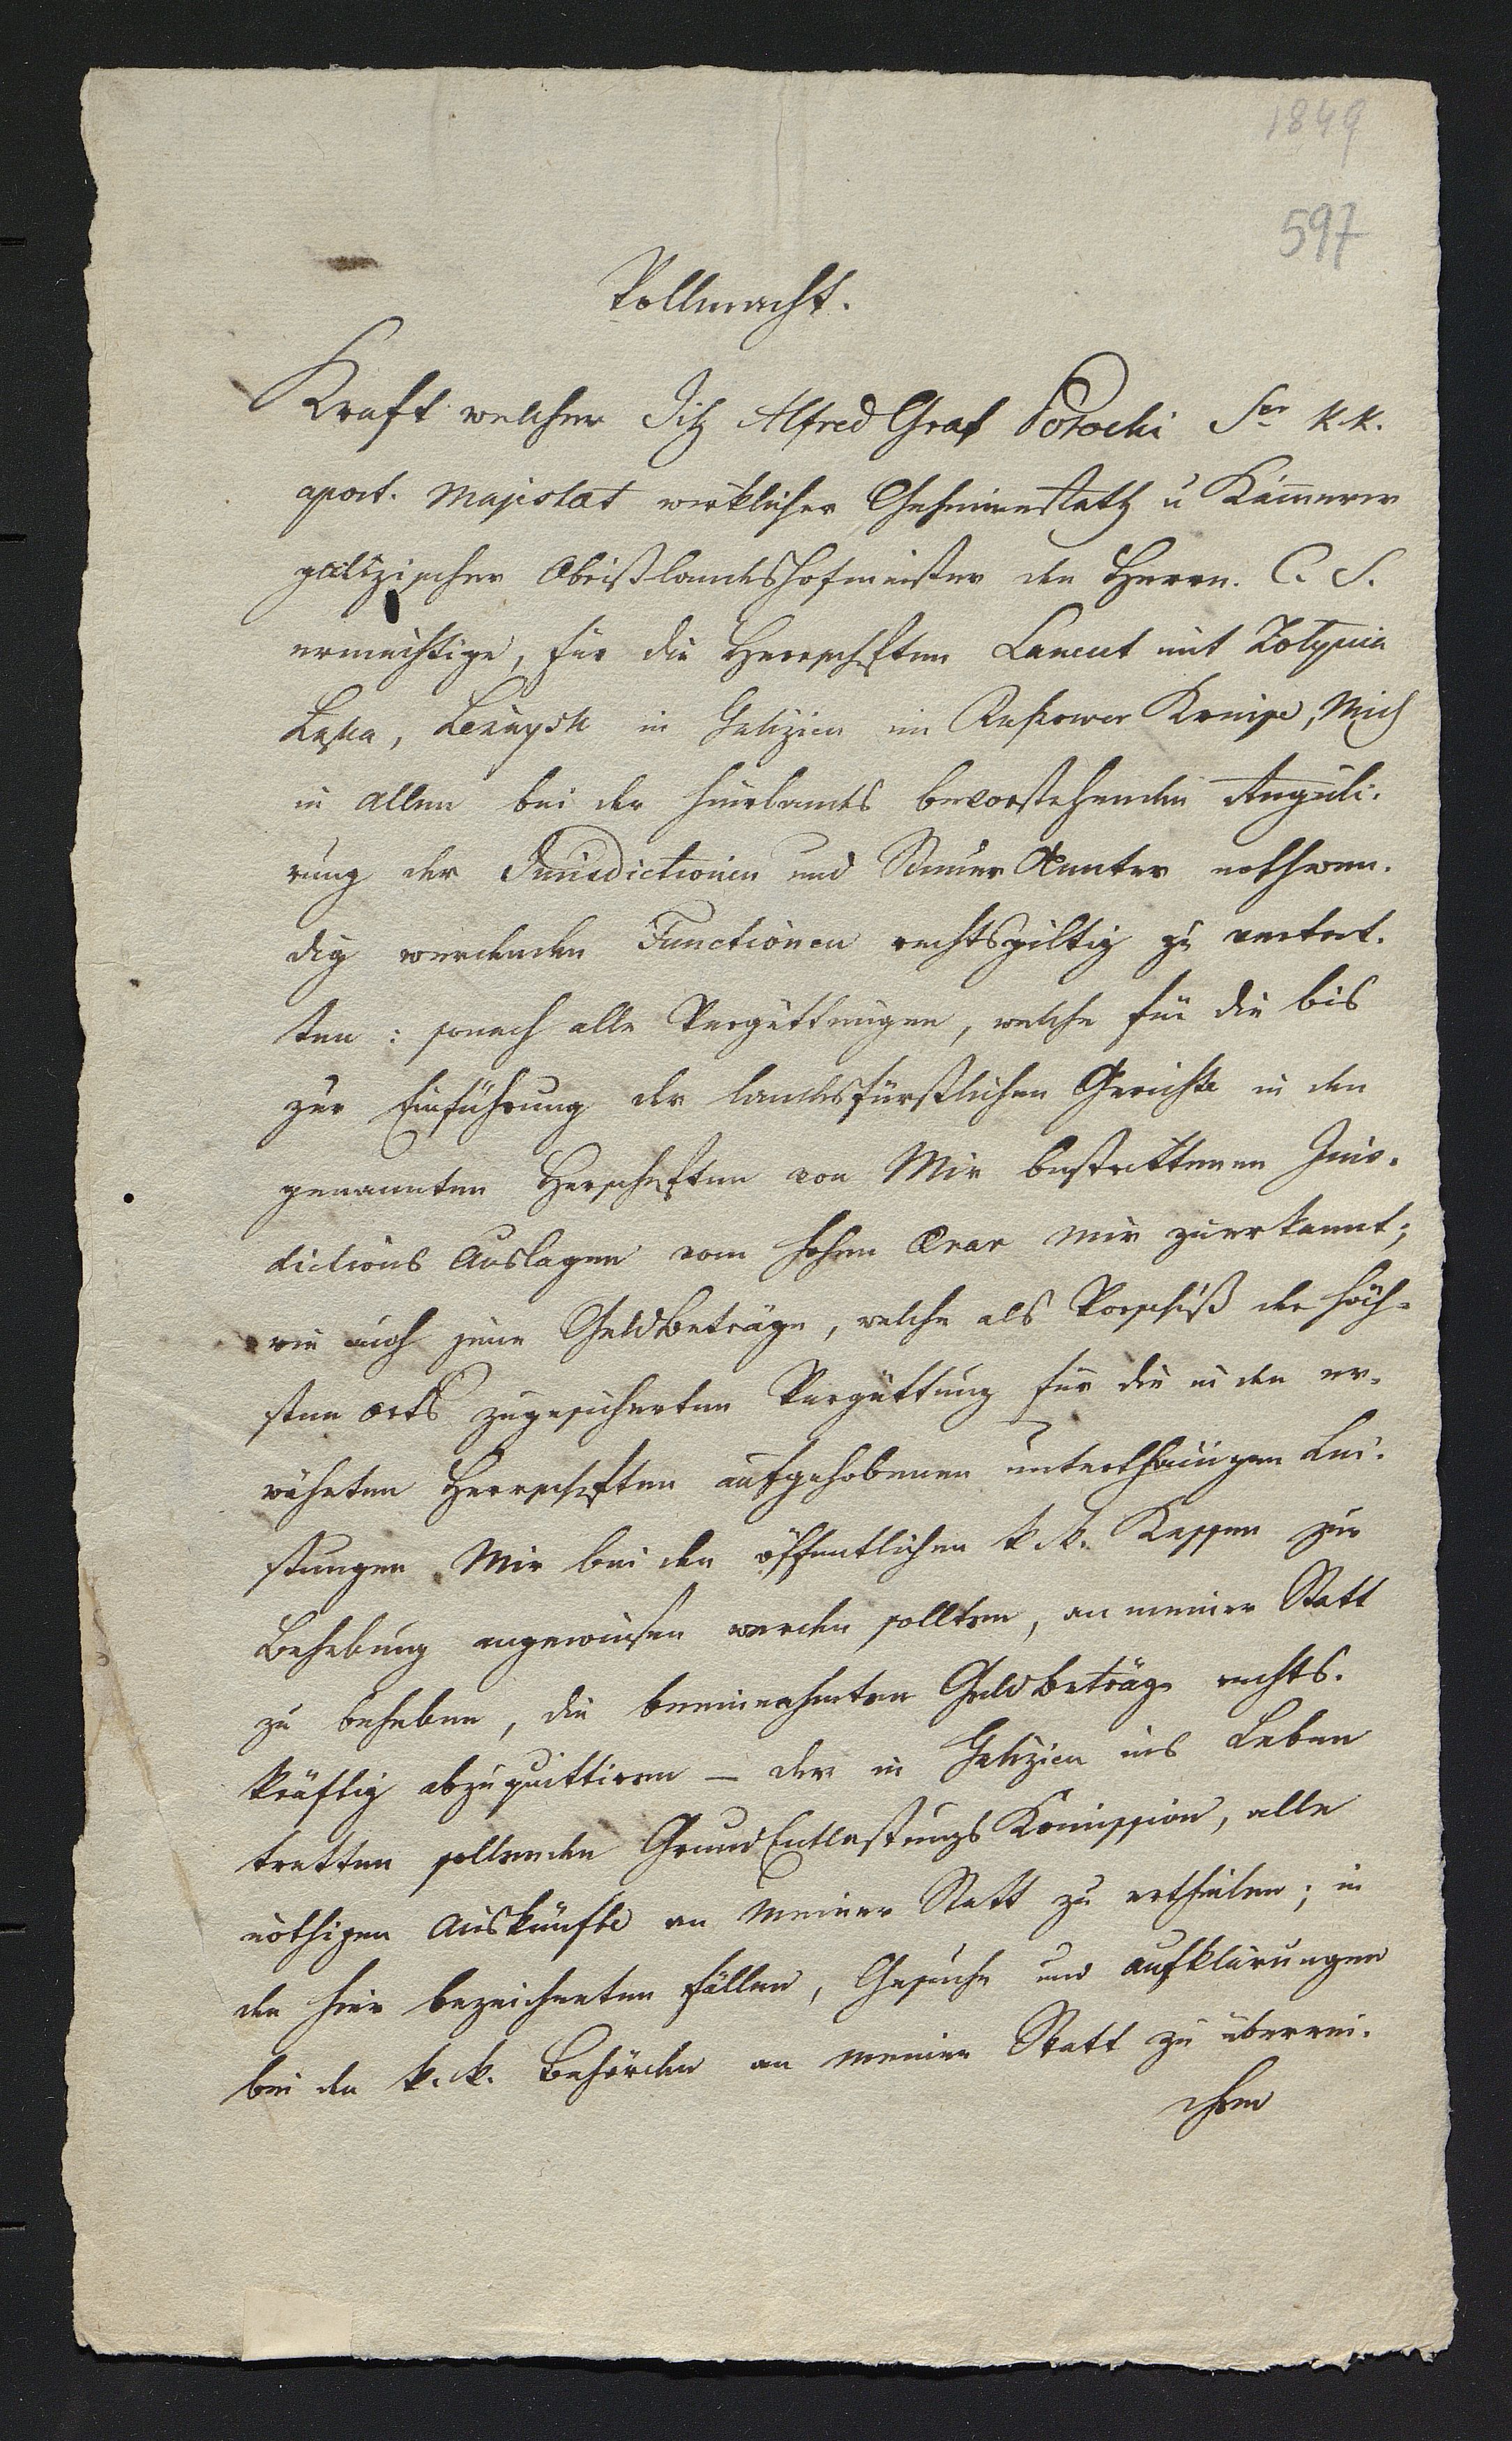 1849
597
Vollmacht.
Kraft welcher Ich Alfred Graf Potocki Sr k. k.
apost. Majestät wirklicher Geheimerath u Kämmerer
galizischer Obristlandeshofmeister den Herrn. C. S.
ermächtige, für die Herrschaften Lancut mit Zolynia
Łąka, Leżaysk in Galizien im Rzeszower Kreise, Mich
in allen bei der hierlands bevorstehenden Reguli-
rung der Jurisdictionen und Steuer Aemter nothwen-
dig werdenden Functionen rechtsgiltig zu vertret-
ten: sonach alle Vergüttungen, welche für die bis
zur Einführung der landesfürstlichen Gerichte in den
genannten Herschaften von Mir bestrittenen Juris-
dictions Auslagen vom hohen Ärar mir zuerkannt;
wie auch jene Geldbeträge, welche als Vorschuß der höch-
sten Orts zugesicherten Vergüttung für die in den er-
wähnten Herrschaften aufgehobenen unterthänigen Lei-
stungen Mir bei den öffentlichen k. k. Kassen zur
Behebung angewiesen werden sollten, an meiner Statt
zu beheben, die beeinnahmten Geldbeträge rechts-
kräftig abzuquittiren – der in Galizien ins Leben
tretten sollenden GrundEntlastungs Komission, alle
nöthigen Auskünfte an meiner Statt zu ertheilen; in
den hier bezeichneten Fällen, Gesuche und Aufklärungen
bei den k. k. Behörden an meiner Statt zu überrei-
chen